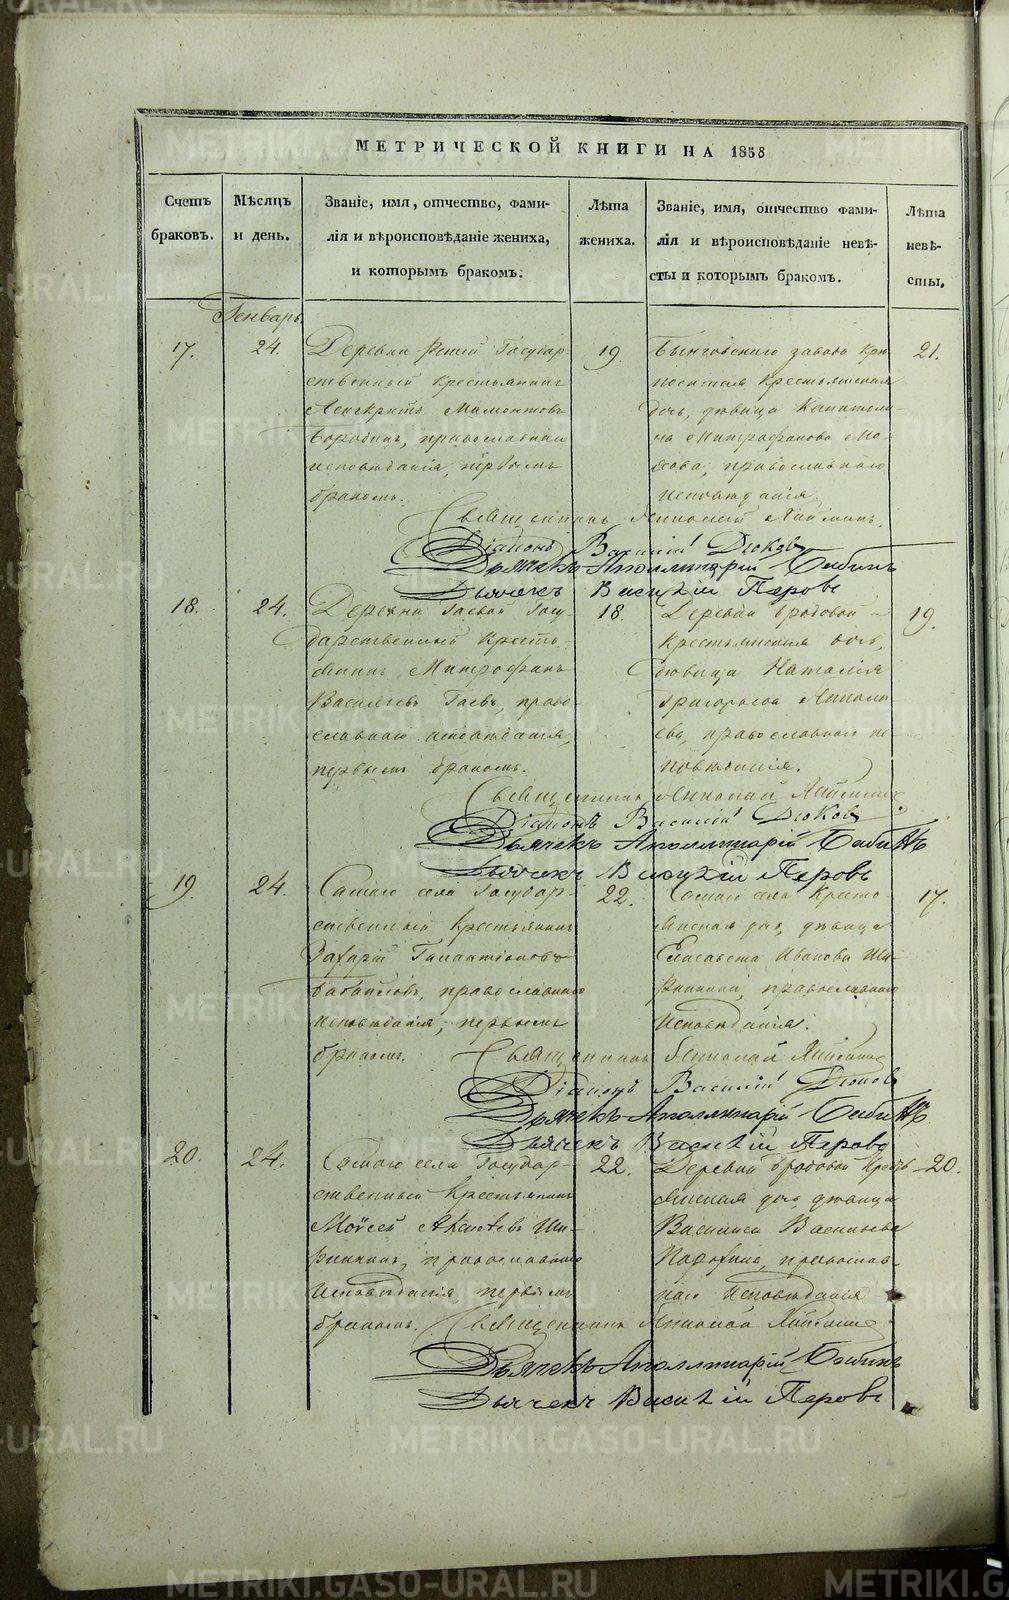 МЕТРИЧЕСКОЙ КНИГИ НА 1858
Счетъ браковъ.
Мѣсяцъ и день.
Званіе, имя, отчество, фами-
лія и вѣроисповѣданіе жениха,
и которымъ бракомъ.
Лѣта жениха.
Званіе, имя, отчество фами-
лія и вѣроисповѣданіе невѣ-
сты и которымъ бракомъ.
Лѣта невѣ-
сты.
Генварь
17.
24.
Деревни Государ-
ственный крестьянинъ
Мамонтовъ
Бородинъ, православнаго
исповѣданія, первымъ
бракомъ.
19.
Бынговскаго завода
крестьянская
дочь, дѣвица Капитоли-
на Митрофанова
православнаго
исповѣданія.
21.
Священникъ Николай
Діаконъ Василій Дюковъ
Дьячекъ Аполлинарій Бабинъ
Дьячекъ Василій Перовъ
18.
24.
Деревни Гаевой Госу-
дарственный кресть-
янинъ Митрофанъ
Васильевъ Гаевъ, право-
славнаго исповѣданія,
первымъ бракомъ.
18.
Деревни Бродовой
крестьянская дочь,
дѣвица Наталія
Григорьева Никола-
ева, православнаго ис-
повѣданія.
19.
Священникъ Николай
Діаконъ Василій Дюковъ
Дьячекъ Аполлинарій Бабинъ
Дьячекъ Василій Перовъ
19.
24.
Самаго села Государ-
ственный крестьянинъ
Захарій Галактіоновъ
Бабайловъ, православнаго
исповѣданія, первымъ
бракомъ.
22.
Самаго села Кресть-
янская дочь, дѣвица
Елисавета Иванова Ши-
православнаго
исповѣданія.
17.
Священникъ Николай
Діаконъ Василій Дюковъ
Дьячекъ Аполлинарій Бабинъ
Дьячекъ Василій Перовъ
20.
24.
Самаго села Государ-
ственный крестьянинъ
Моисей
православнаго
исповѣданія первымъ
бракомъ.
22.
Деревни Бродовой Кресть-
янская дочь дѣвица
Василиса Васильева
православ-
наго исповѣданія
20.
Священникъ Николай
Дьячекъ Аполлинарій Бабинъ
Дьячекъ Василій Перовъ
METRIKI.GASO-URAL.RU